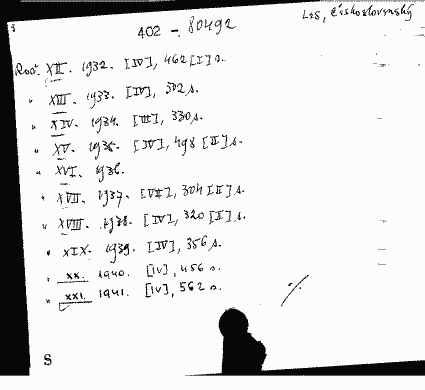 Les, Československý
402 - 80492
Roč. XII. 1932. [IV], 462 [I] s.
" XIII. 1933. [IV], 302 s.
" XIV. 1934. [III], 330 s.
" XV. 1935. [IV], 498 [II] s.
" XVI. 1936.
" XVII. 1937. [VII], 304 [II] s.
" XVIII. 1938. [IV], 320 [I] s.
" XIX. 1939. [IV], 356 s.
" XX. 1940. [IV], 456 s.
" XXI. 1941. [IV], 562 s.
·/.
S